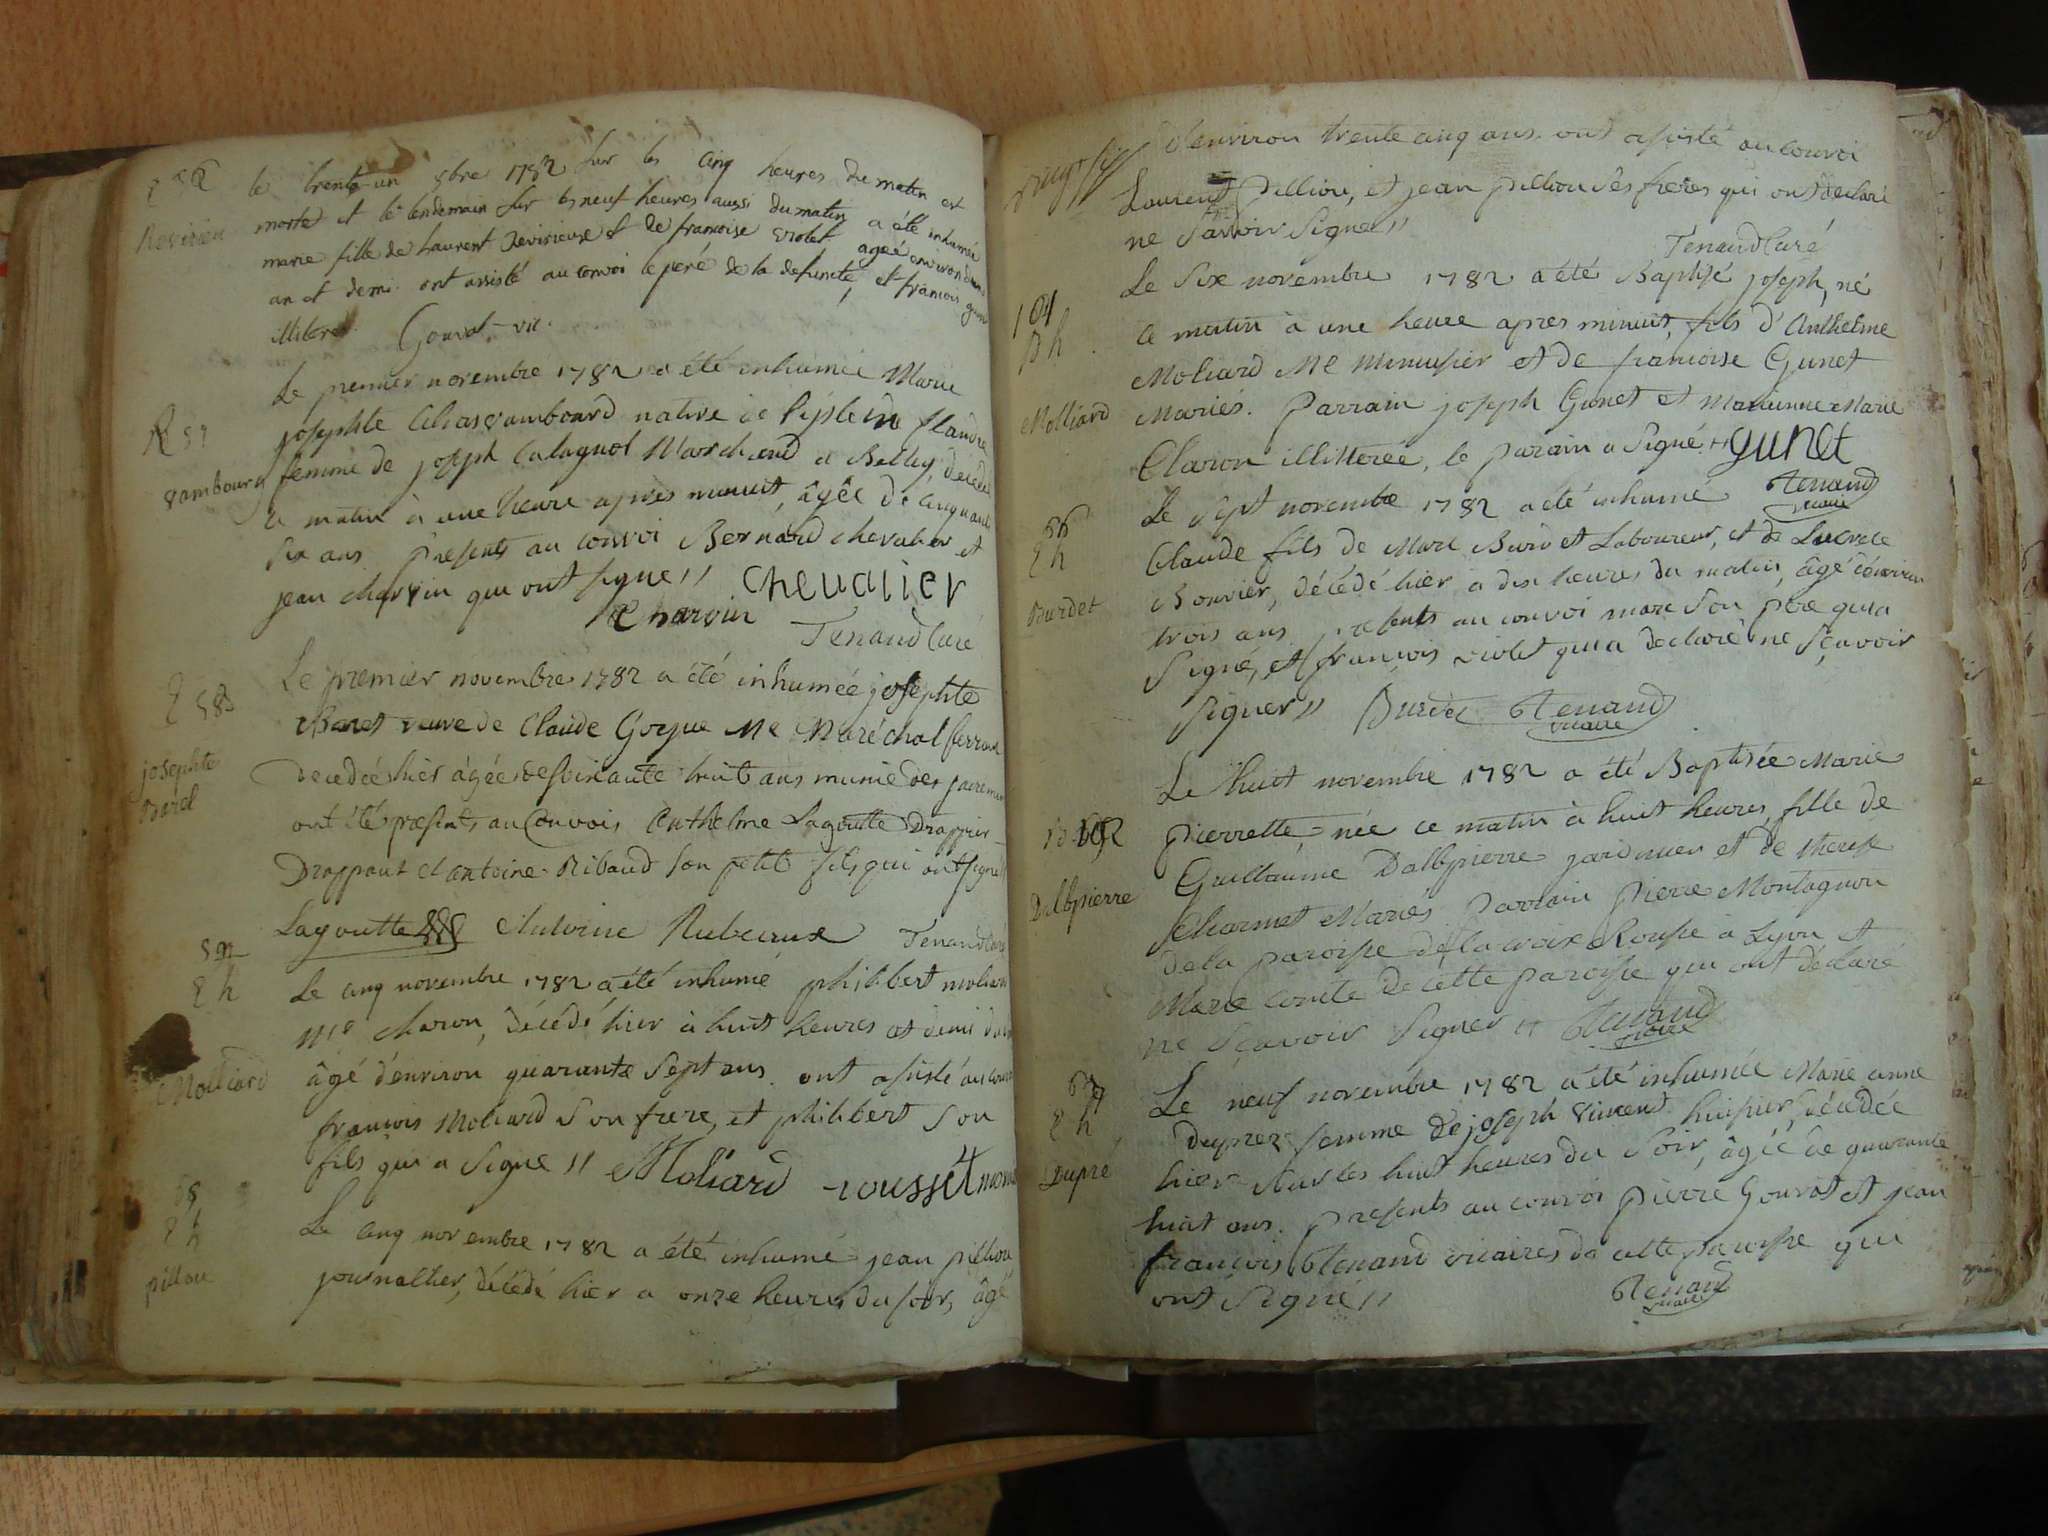 le trente un 8bre 1782 sur les cinq heures du matin est
morte et le lendemain sur les neuf heures aussi du matin a été inhumée
Revirieu
marie fille de Laurent Revirieux et de francoise violet agée environ d'un
an et demi ont assisté au convoi le pere de la defuncte, et francois
illiteres. Gouvat vic.
Le premier novembre 1782 a été inhumée Marie
57
josephte gambourd native de en flandre
gambourd
femme de joseph Calagnol Marchand a Belley, decedée
ce matin à une heure apres minuit, âgée de cinquante
six ans presents au convoi Bernard chevalier et
jean charvin qui ont signe //
chevalier
Charvin
Tenand Curé
Le premier novembre 1782 a été inhumée josephte
58
Baret veuve de Claude Gorgue Me Maréchal ferrant
josephte
Barel
decedée hier âgée de soixante huit ans munie des sacremens
ont été presents au Convois Anthelme Lagoutte Drappier
Drappant et antoine Ribaud son petit fils qui ont signé
Lagoutte Antoine Tenand Curé
59
E h
Le cinq novembre 1782 a été inhumé philibert moliard
Me Maçon, décédé hier à huit heures et demi du
Molliard
âgé d'environ quarante sept ans. ont assisté au convoi
francois Moliard son frere, et philibert son
fils qui a signe // Moliard rousset
E h
Le cinq novembre 1782 a été inhumé jean pilliou
pillou
journallier, décédé hier a onze heures du soir, âgé
d'environ trente cinq ans. ont assisté au convoi
Laurent pilliou, et jean pilliou ses freres qui ont declaré
ne savoir signer //
Tenand Curé
Le six novembre 1782 a été Baptisé joseph, né
104
B h
ce matin à une heure apres minuit, fils d'Anthelme
Moliard Me Menusier et de francoise Gunet
Molliard
Mariés. Parrain joseph Gunet et Marianne Marie
Claron illitterée, le parain a signé // gunet
Le sept novembre 1782 a été inhumé
Tenand
vicaire
E h
Claude fils de Marc Burdet Laboureur, et de Lucrece
Burdet
Bouvier, décédé hier a dix heures du matin, âgé d'environ
trois ans presents au convoi marc son père qui a
signé, et francois violet qui a declaré ne sçavoir
signer // Burdet Tenand
vicaire
Le huit novembre 1782 a été Baptisée Marie
pierrette, née ce matin à huit heures, fille de
Guillaume Dalbpierre jardinier et de therese
Dalbpierre
Charmet Mariés. Parrain Pierre Montagnon
de la paroisse de la croix Rousse a Lyon et
Marie comte de cette paroisse qui ont déclaré
ne sçavoir signer // Tenand
vicaire
Le neuf novembre 1782 a été inhumée Marie anne
E h
Duprez femme de joseph vincent huissier, décédée
Dupré
hier sur les huit heures du soir, âgée de quarante
huit ans. presents au convoi pierre Gouvat et jean
francois Tenand vicaires de cette paroisse qui
ont signé //
Tenand
vicaire